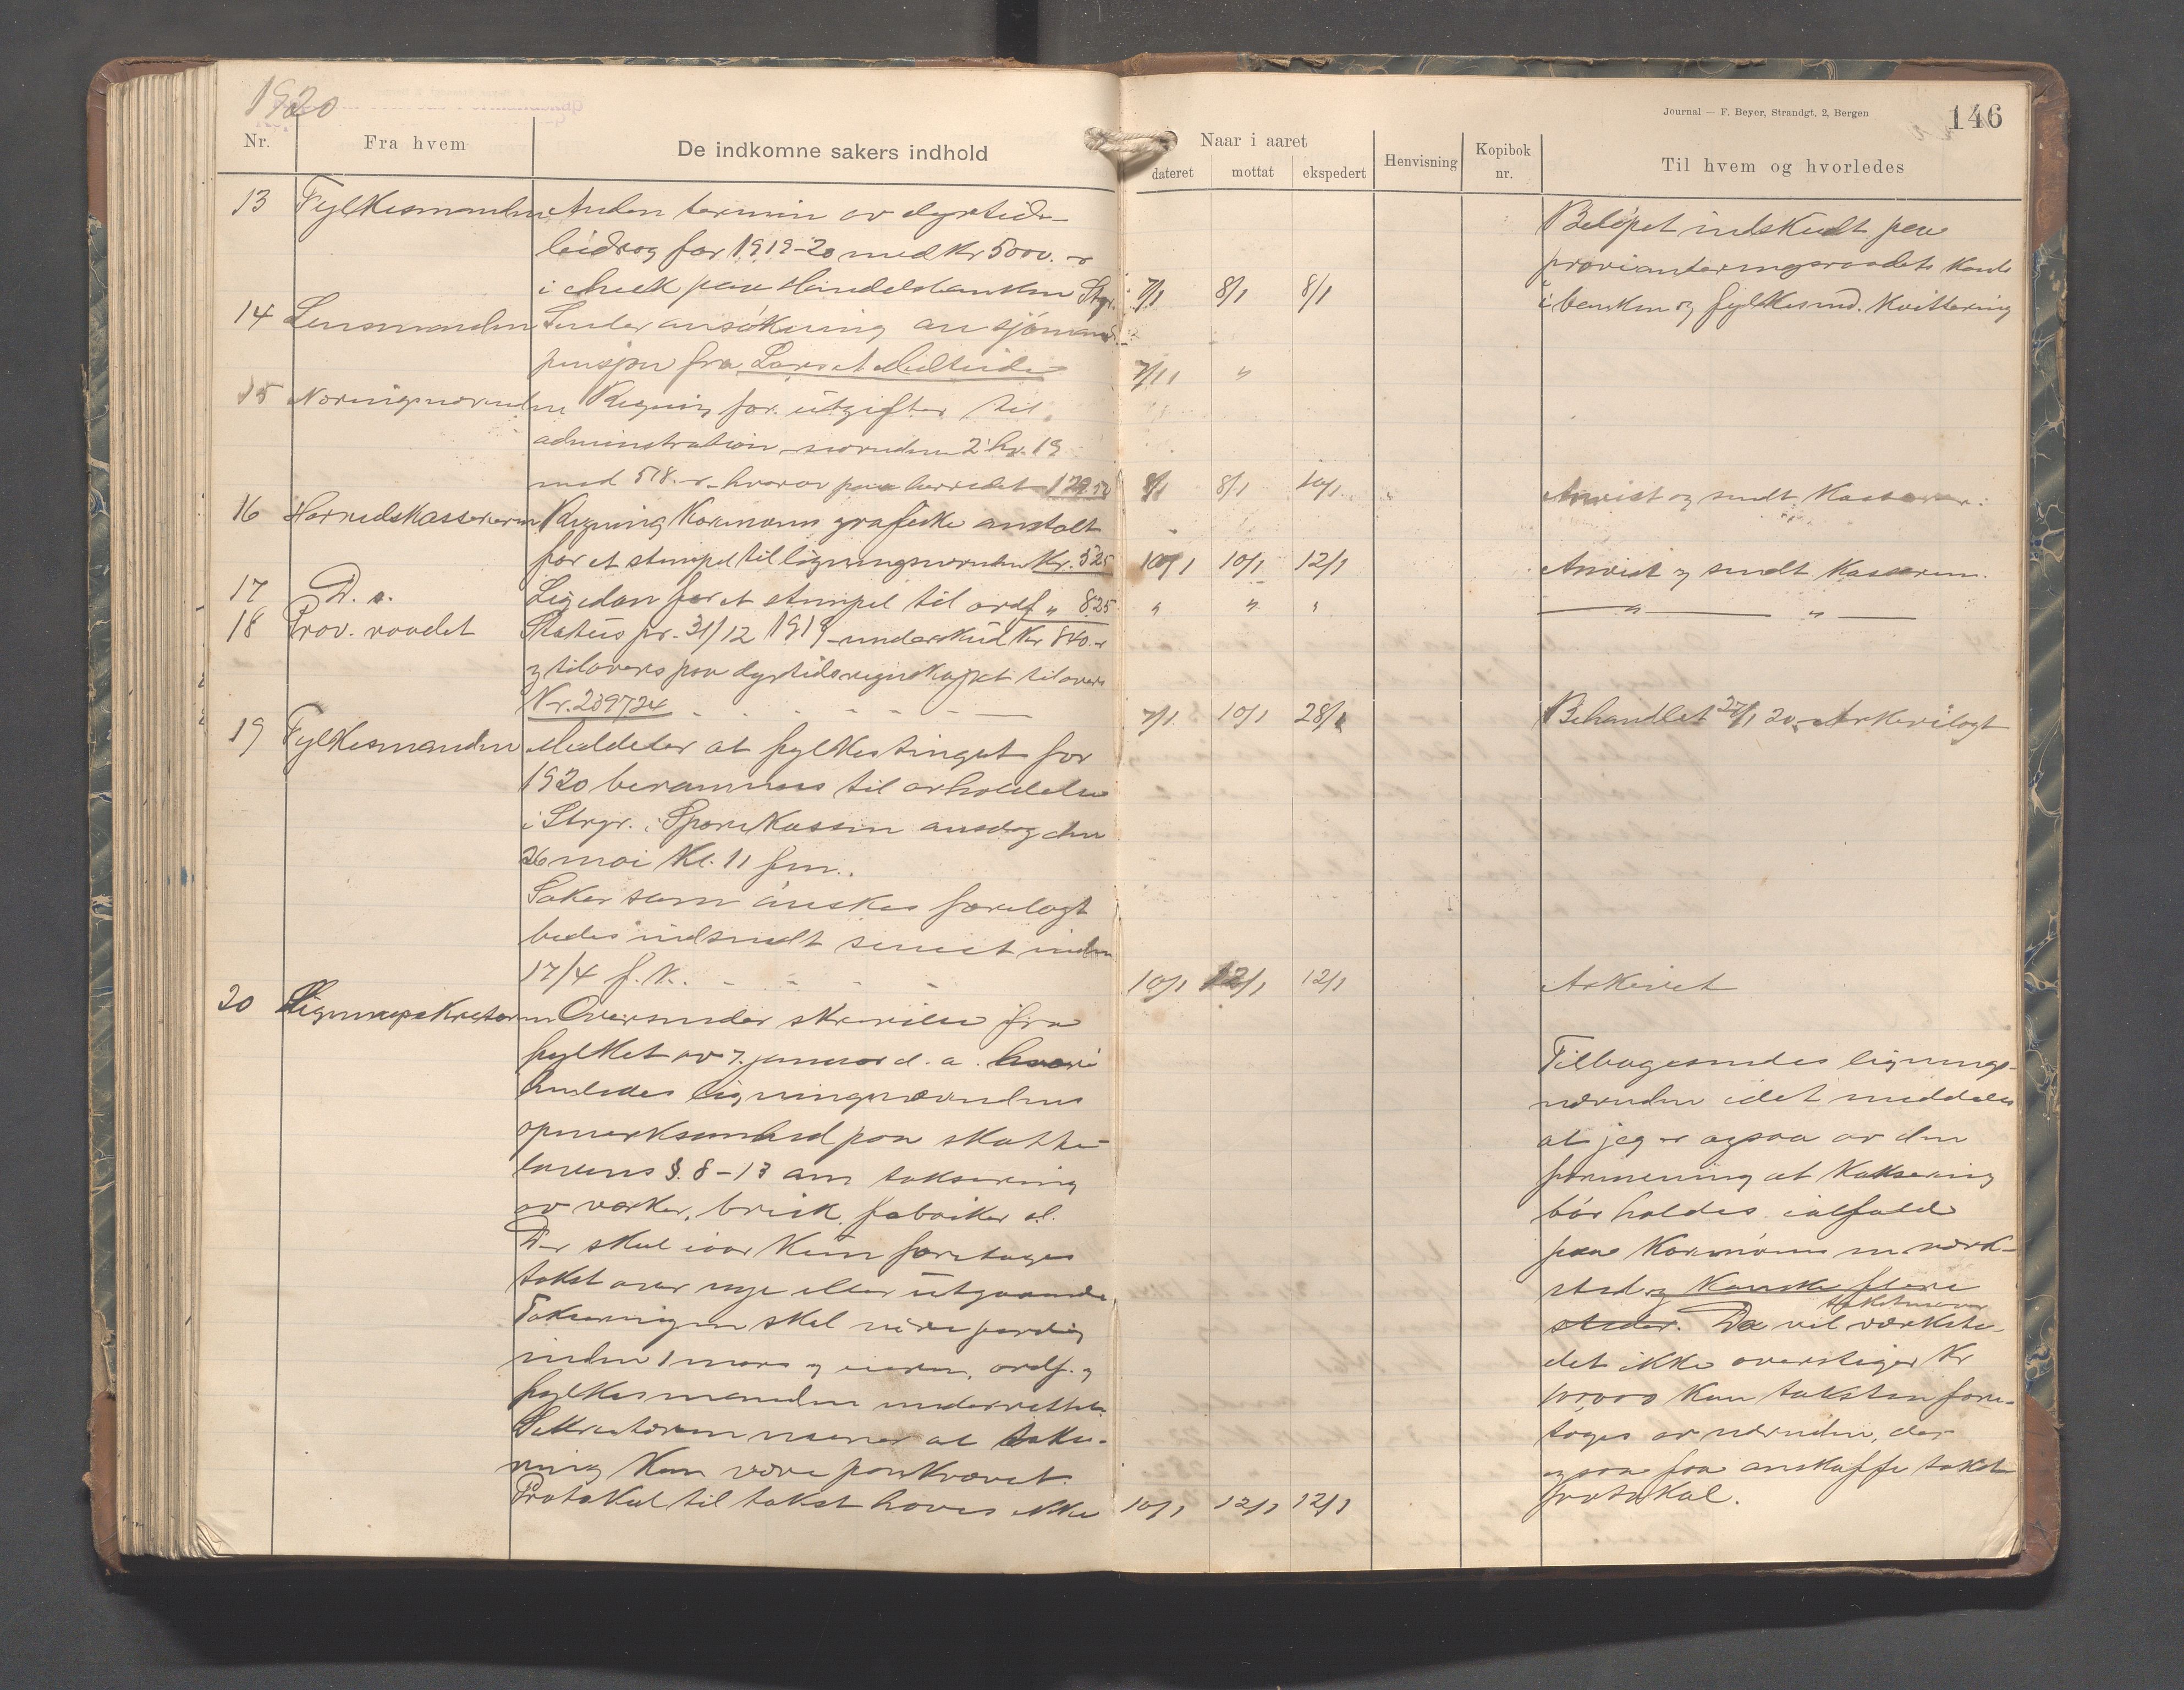 1920
Journal — F. Beyer, Strandgt. 2, Bergen
146
Nr.
Fra hvem
De indkomne sakers indhold
Naar i aaret
dateret
mottat
ekspedert
Henvisning
Kopibok nr.
Til hvem og hvorledes
13 Fylkesmanden Anden termin av dyrtids-
bidrag for 1919-20 med Kr 5000.-
i check paa Handelsbanken Stgr. 7/1 8/1 8/1
Beløpet indskudt paa
provianteringsraadets konto
i banken og fylkesmd. Kvittering
14 Lensmanden Sender ansøkning om sjömands-
pensjon fra Lars 7/1 "
15 Regning for utgifter til
administration 2 hv. 19
med 518.- hvorav paa herredet 129.50 8/1 8/1 10/1 Anvist og sendt Kasserer.
16 Herredskassereren Regning grafiske anstalt
for et stempel til ligningsnevnden Kr. 525 10/1 10/1 12/1 Anvist og sendt Kasseren.
17 D. o. Ligedan for et stempel til ordf " 825 " " " " "
18 Prov. raadet Status pr. 31/12 1919 underskud Kr 840.-
og tilovers paa dyrtidsregnskapet tilovers
Kr. 239724 7/1 10/1 28/1 Behandlet 27/1 20. Arkivlagt
19 Fylkesmanden Meddeler at fylkestinget for
1920 berammes til avholdelse
i Stvgr. i Sparekassen onsdag den
26 mai Kl. 11 fm.
Saker som ønskes forelagt
bedes indsendt senest inden
17/4 f. k. 10/1 12/1 12/1 Arkivet
20 Ligningssekretæren Oversender skrivelse fra
fylket av 7. januar d. a. hvori
henledes ligningsnævndens
opmerksomhed paa skatte-
lovens §. 8-13 om taksering
av verker, bruk, fabriker ol.
Der skal iaar kun foretages
takst over nye eller utgaaende
Takseringen skal være færdig
inden 1 mars og eieren, ordf. og
fylkesmanden underrettes.
Sekretæren mener at takse-
ring kan være paakrævet.
Protokol til takst haves ikke 10/1 12/1 12/1
Tilbagesendes lignings-
nævnden idet meddeles
at jeg er ogsaa av den
formening at taksering
bør holdes ialfald
paa m. verk-
sted og kanske flere
steder. Da takstsummen vil værkste-
det ikke overstiger Kr
kan taksten fore-
tages av nævnden, der
ogsaa faar anskaffe takst
protokol.